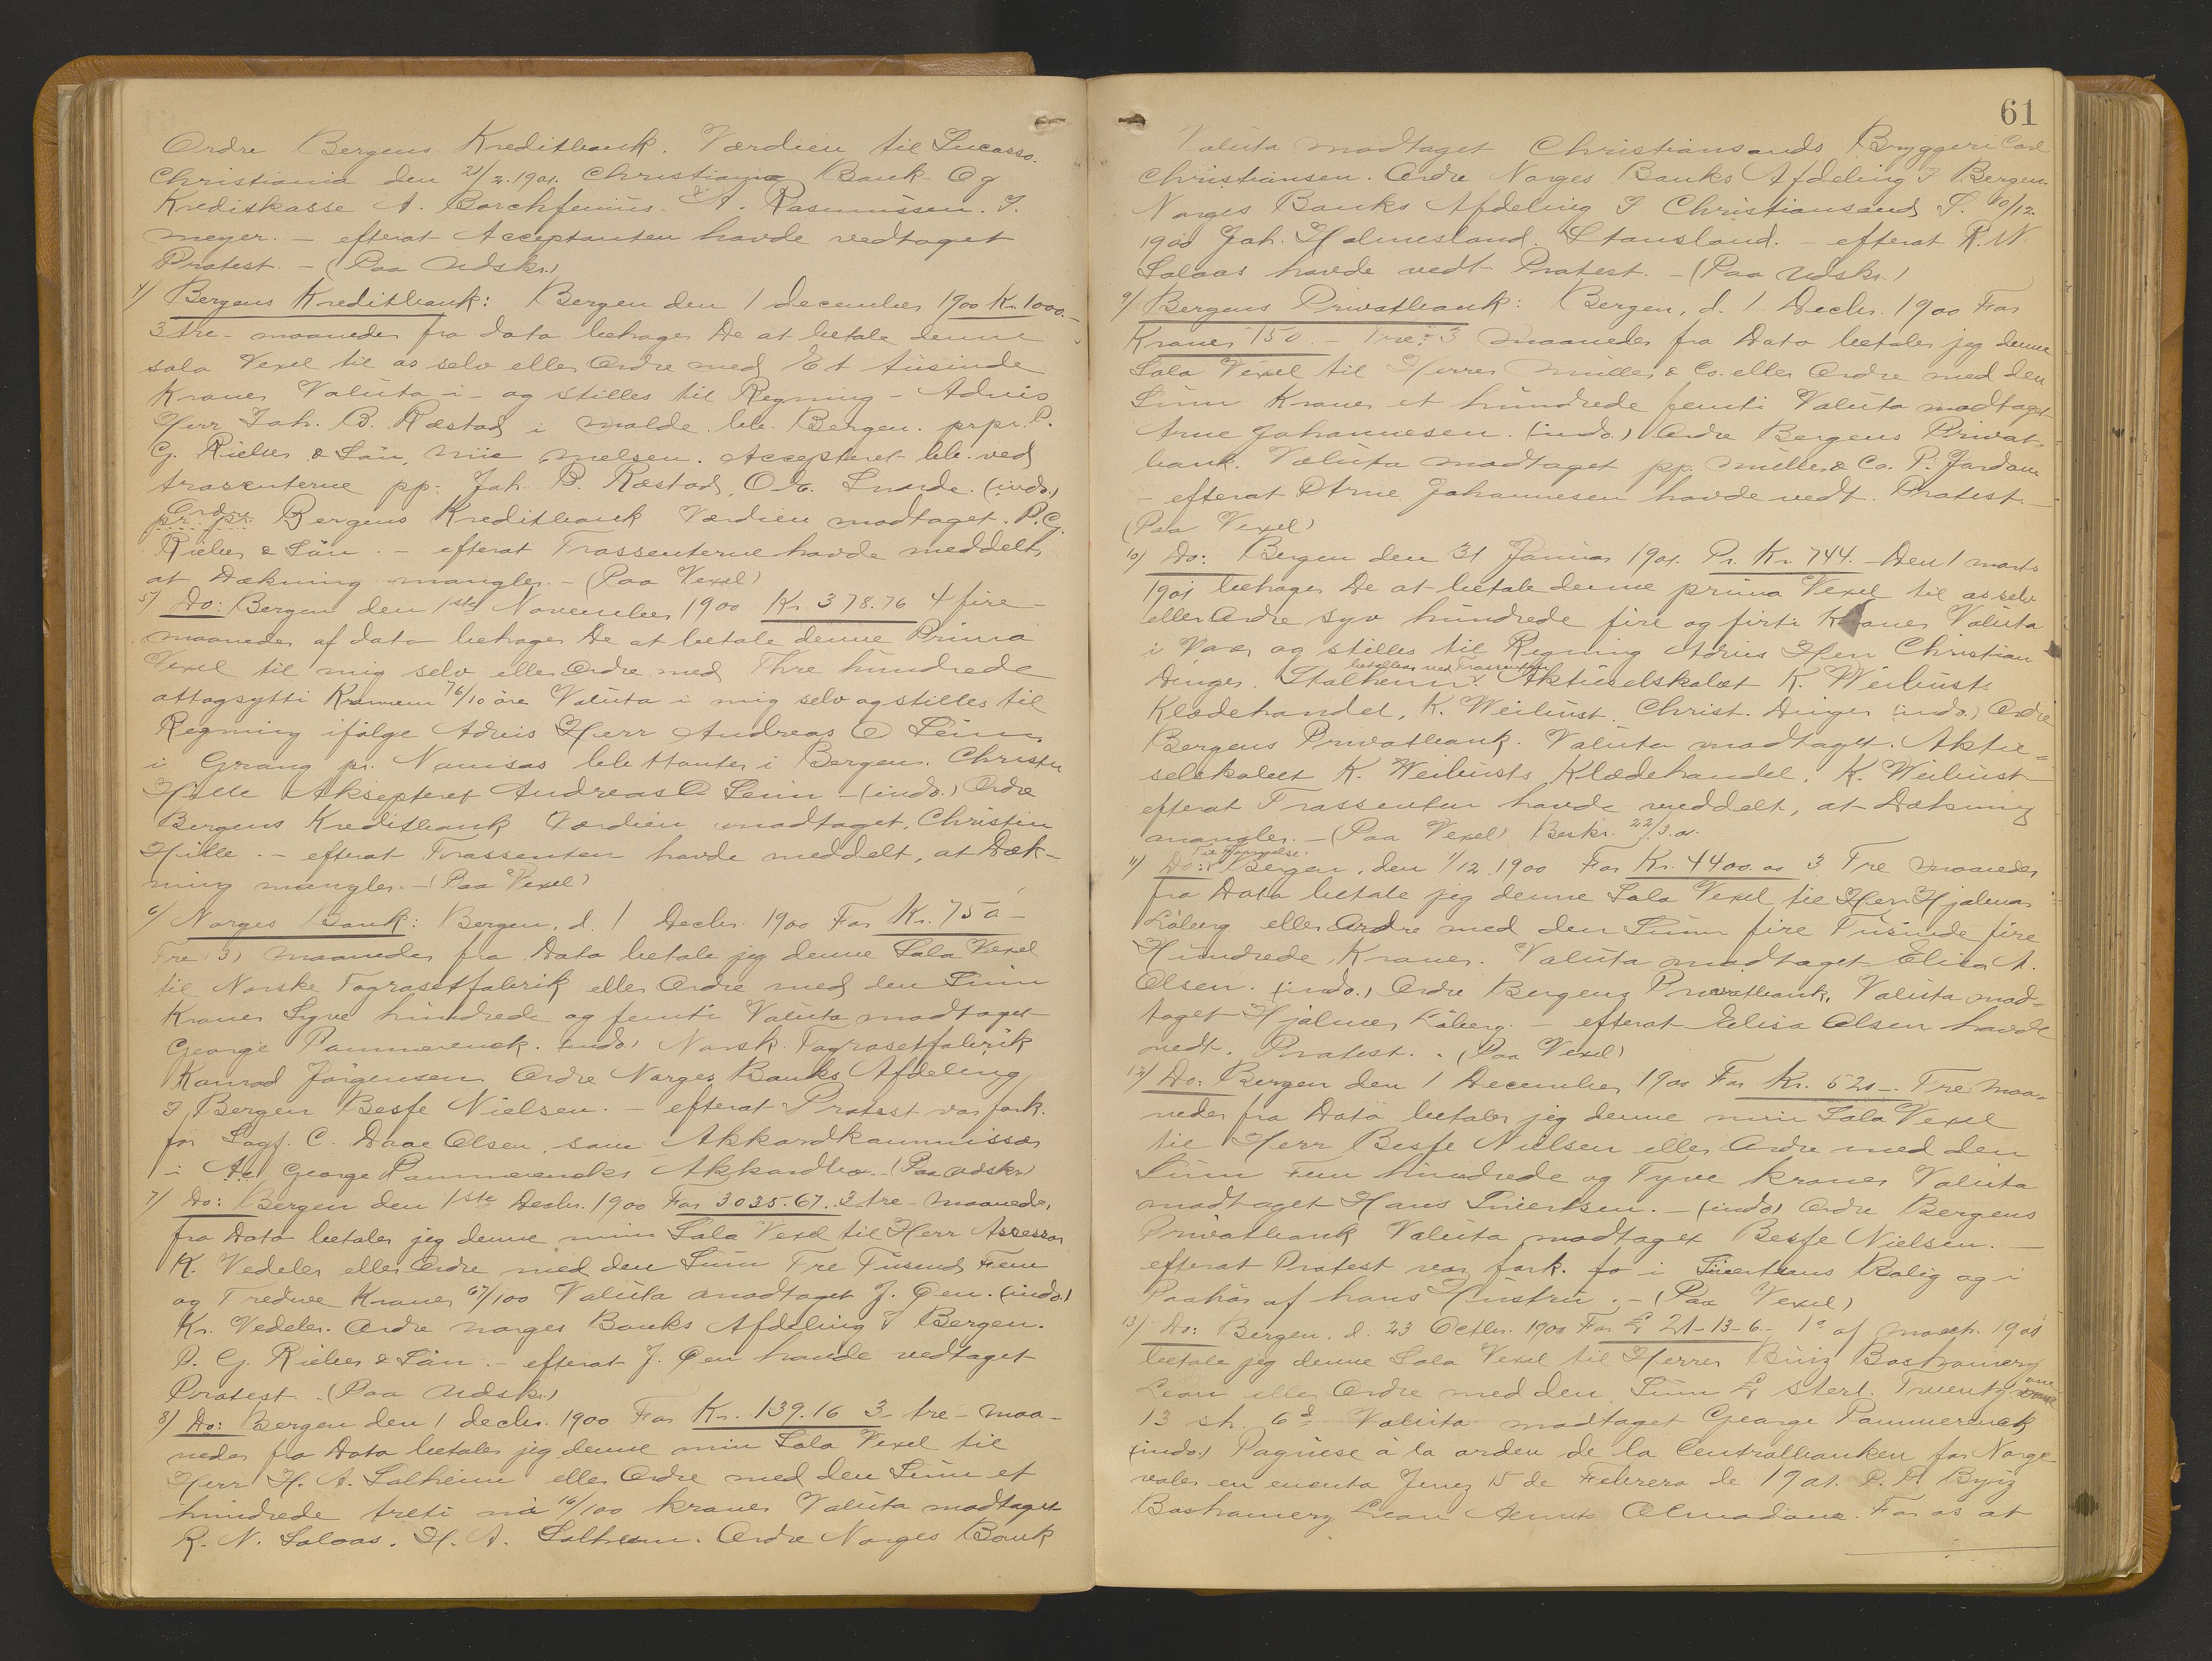 Ordre Bergens Kreditbank. Værdien til Incasso.
Christiania den 21/2.1901. Christiania Bank Og
Kreditkasse A. Borchfenius. A. Rasmussen. I.
meyer. – efterat Acceptanten havde vedtaget
Protest. – (Paa Udskr.)
4/ Bergens Kreditbank: Bergen den 1 december 1900 Kr. 1000.–
3 tre – maaneder fra dato behager De at betale denne
sola Vexel til os selv eller Ordre med Et tusinde
Kroner Valuta i – og stilles til Regning – Advis
Herr Joh. B. Ræstad i molde bet. Bergen. prpr. P.
G. Rieber & Søn, Accepteret bet. ved
trassenterne pp. Joh. B. Ræstad, (indo.)
Ordre
pr. pr. Bergens Kreditbank Værdien modtaget. P. G.
Rieber & Søn. – efterat Trassenterne havde meddelt,
at Dækning mangler. – (Paa Vexel)
5/ Do: Bergen den 1ste November 1900 Kr. 378.76 4 fire –
maaneder af dato behager De at betale denne Prima
Vexel til mig selv eller Ordre med Thre hundrede
ottogsytti Kroner 76/10 øre Valuta i mig selv og stilles til
Regning ifølge Advis Herr Andreas O
i Grong pr. Namsos i Bergen. Christen
Hille Aksepteret Andreas O – (indo.) Ordre
Bergens Kreditbank Værdien modtaget. Christen
Hille. – efterat Trassenten havde meddelt, at Dæk-
ning mangler. – (Paa Vexel)
6/ Norges Bank: Bergen, d. 1 Decbr. 1900 For Kr. 750 –
Tre (3) maaneder fra Dato betale jeg denne Sola Vexel
til Norske Tograsetfabrik eller Ordre med den Sum
Kroner Syve hundrede og femti Valuta modtaget
George Pommerenck. indo. Norsk Tograsetfabrik
Konrad Jørgensen. Ordre Norges Banks Afdeling
I Bergen Besfe Nielsen. – efterat Protest var fork.
for Sagf. C. Daae Olsen, som Akkordkommissær
i George Pommerencks Akkordbo. (Paa Udskr)
7/ Do: Bergen den 1ste Decbr. 1900 For 3035.67. 3 tre – maaneder,
fra Dato betaler jeg denne min Sola Vexel til Herr Assessor
K. Vedeler eller Ordre med den Sum Tre Tusend Fem
og Tredive Kroner 67/100 Valuta modtaget J. Øen. (indo.)
Kr. Vedeler. Ordre norges Banks Afdeling I Bergen.
P. G. Rieber & Søn. – efterat J. Øen havde vedtaget
Protest. (Paa Udskr.)
8/ Do: Bergen den 1 decbr. 1900 For Kr. 139.16 3 tre – maa-
neder fra Dato betaler jeg denne min Sola Vexel til
Herr H. A. Solheim eller Ordre med den Sum et
hundrede treti ni 16/100 kroner Valuta modtaget
R. N. Solaas. H. A. Solheim. Ordre Norges Bank
61
Valuta modtaget Christiansands Bryggeri Carl
Christiansen. Ordre Norges Banks Afdeling I Bergen.
Norges Banks Afdeling I Christiansand S. 10/12.
1900 Joh. Holmesland. Stausland. – efterat R. N.
Solaas havde vedt. Protest. – (Paa Udskr.)
9/ Bergens Privatbank: Bergen, d. 1. Decbr. 1900 For
Kroner 150. – Tre: 3 maaneder fra Dato betaler jeg denne
Sola Vexel til Herrer Müller & Co. eller Ordre med den
Sum Kroner et hundrede femti Valuta modtaget
Arne Johannesen. (indo.) Ordre Bergens Privat-
bank. Valuta modtaget pp. Müller & Co. P. Jordan
– efterat Arne Johannesen havde vedt. Protest. –
(Paa Vexel)
10/ Do: Bergen den 31 Januar 1901. Pr. Kr. 744. – Den 1 marts
1901 behager De at betale denne prima Vexel til os selv
eller Ordre syv hundrede fire og firti Kroner Valuta
i Varer og stilles til Regning Advis Herr Christian
betalbar ved Trassenten
Dinger. Stalheim. Aktieselskabet K. Weibusts
Klædehandel, K. Weibust. Christ. Dinger (indo.) Ordre
Bergens Privatbank. Valuta modtaget. Aktie-
selskabet K. Weibusts Klædehandel. K. Weibust –
efterat Trassenten havde meddelt, at Dækning
mangler. – (Paa Vexel) Beskr. 22/3.01.
11/ Do: Bergen, den 1/12.1900 For Kr. 4400.00 3 Tre maaneder
fra Dato betale jeg denne Sola Vexel til Herr Hjalmar
Løberg eller Ordre med den Sum fire Tusinde fire
Hundrede, Kroner. Valuta modtaget Elisa A.
Olsen. (indo.) Ordre Bergens Privatbank, Valuta mod-
taget Hjalmar Løberg. – efterat Elisa Olsen havde
vedt. Protest. – (Paa Vexel)
12/ Do: Bergen den 1 December 1900 For Kr. 520 –. Tre Maa-
neder fra Dato betaler jeg denne min Sola Vexel
til Herr Besfe Nielsen eller Ordre med den
Sum Fem hundrede og Tyve kroner Valuta
modtaget Hans Sivertsen. – (indo) Ordre Bergens
Privatbank Valuta modtaget Besfe Nielsen. –
efterat Protest var fork. i Sivertsens Bolig og i
Paahør af hans Hustru. – (Paa Vexel)
13/ Do: Bergen, d. 23 Octbr. 1900 For £ 21–13–6. 1º of march 1901
betale jeg denne Sola Vexel til Herrer Ruiz Bashamery
Leon eller Ordre med den Sum £ Sterl. Twenty one
13 sh. 6d Valuta modtaget George Pommerenck
(indo.) Paguese à la orden de la Centralbanken for Norge
valor en cuenta Jerez 15 de Febrero de 1901. P. P. Ruiz
Bashamery Leon For os at